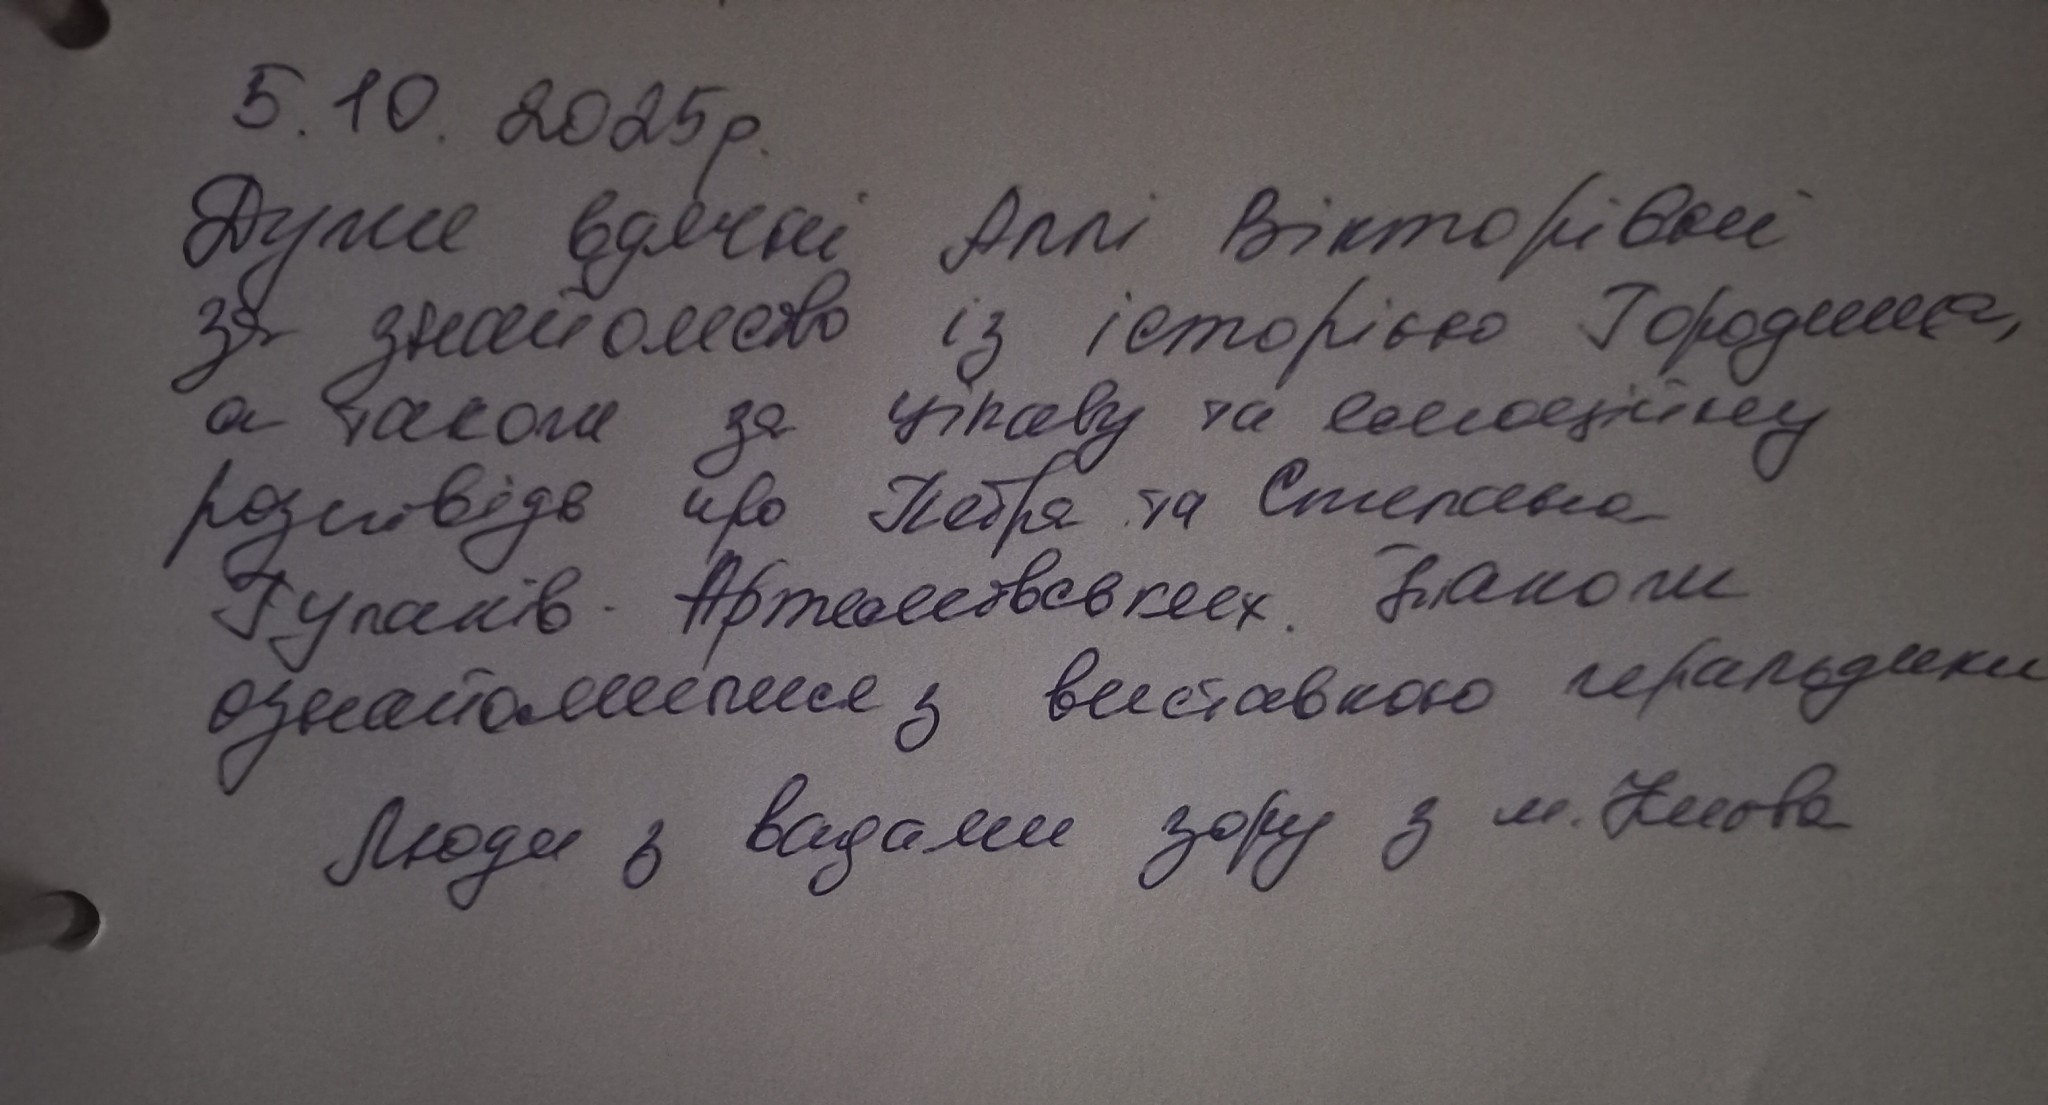 5.10.2025р.
Дуже вдячні Аллі Вікторівні
за знайомство із історією Городища,
а також за цікаву та емоційну
розповідь про Петра та Степана
Гулаків-Артемовських. Також
ознайомились з виставкою геральдики
Люди з вадами зору з м. Києва